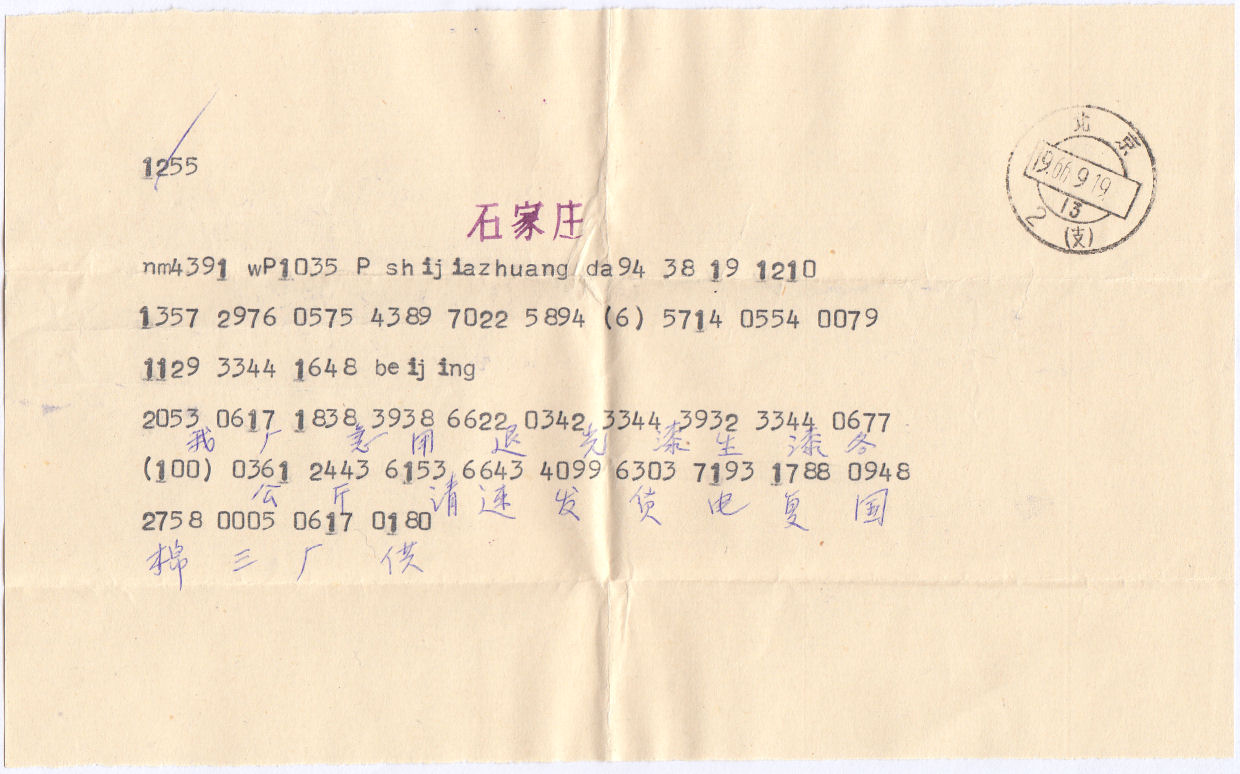 1255
北京
1966.9.19.
13
2
(支)
石家庄
nm4391 wP1035 P shijiazhuang da94 38 19 1210
1357 2976 0575 4389 7022 5894 (6) 5714 0554 0079
1129 3344 1648 beijing
2053 0617 1838 3938 6622 0342 3344 3932 3344 0677
我厂急用退光漆生漆各
(100) 0361 2443 6153 6643 4099 6303 7193 1788 0948
公斤请速发货电复国
2758 0005 0617 0180
棉三厂供